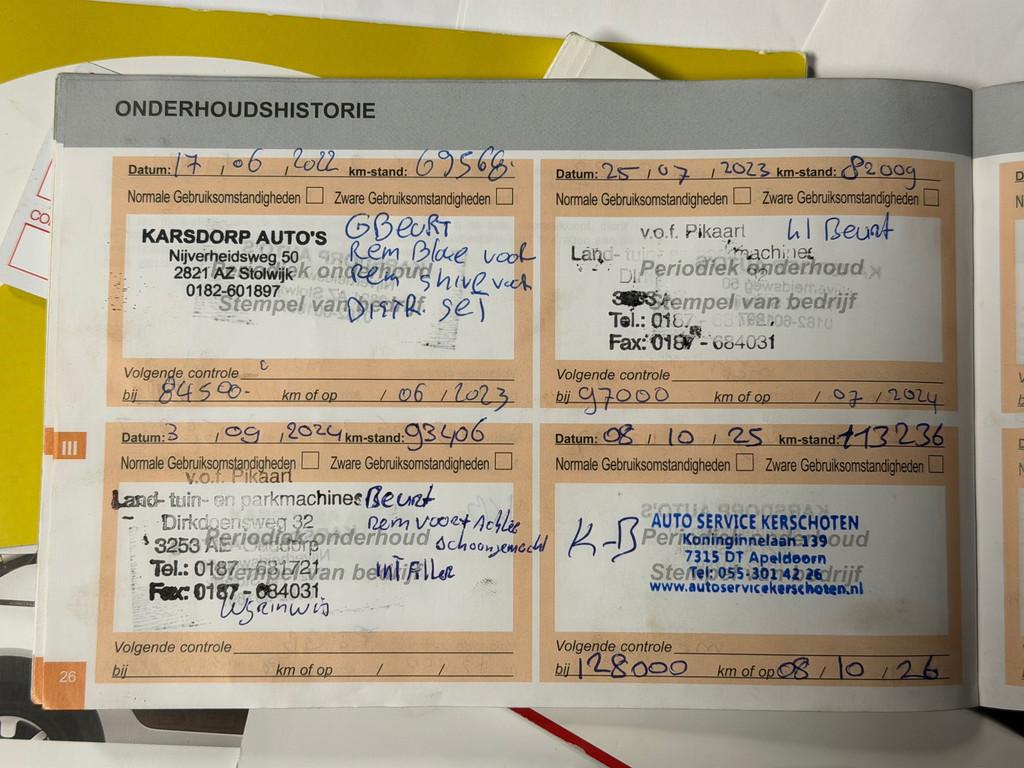 ONDERHOUDSHISTORIE
Datum: 17 , 06 , 2022 km-stand: 69568.
Normale Gebruiksomstandigheden Zware Gebruiksomstandigheden
KARSDORP AUTO'S
Nijverheidsweg 50
2821 AZ Stolwijk
0182-601897
Periodiek onderhoud
Stempel van bedrijf
GBeuRT
Rem Bloke voor
Rem shive voor
DistR. set
Volgende controle
bij 84500.- km of op / 06 / 2023
Datum: 25 , 07 , 2023 km-stand: 82009
Normale Gebruiksomstandigheden Zware Gebruiksomstandigheden
v.o.f. Pikaart
Land- machines
Periodiek onderhoud
Stempel van bedrijf
Tel.: 0187
Fax: 0187 - 684031
kl Beurt
Volgende controle
bij 97000 km of op / 07 / 2024
III
Datum: 3 , 09 , 2024 km-stand: 93406
Normale Gebruiksomstandigheden Zware Gebruiksomstandigheden
v.o.f. Pikaart
Land- tuin- en parkmachines
Dirkdoensweg 32
3253 AE Ouddorp
Tel.: 0187 - 681721
Fax: 0187 - 684031
Periodiek onderhoud
Stempel van bedrijf
Beurt
Rem voor + Achter
schoongemaakt
intFilter
Volgende controle
bij km of op / /
Datum: 08 , 10 , 25 km-stand: 113236
Normale Gebruiksomstandigheden Zware Gebruiksomstandigheden
K-B
AUTO SERVICE KERSCHOTEN
Koninginnelaan 139
7315 DT Apeldoorn
Tel: 055-301 42 26
www.autoservicekerschoten.nl
Periodiek onderhoud
Stempel van bedrijf
Volgende controle
bij 128000 km of op 08 / 10 / 26
26